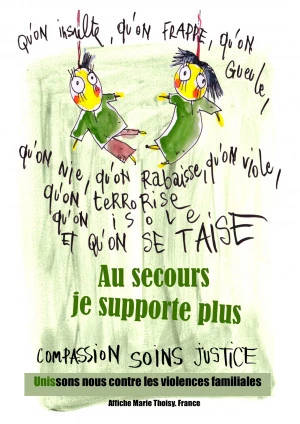 QU'ON INSULTE, QU'ON FRAPPE, QU'ON
GUEULE,
QU'ON NIE, QU'ON RABAISSE, QU'ON VIOLE,
QU'ON TERRORISE
QU'ON ISOLE
ET QU'ON SE TAISE
Au secours
je supporte plus
COMPASSION SOINS JUSTICE
Unissons nous contre les violences familiales
Affiche Marie Thoisy. France